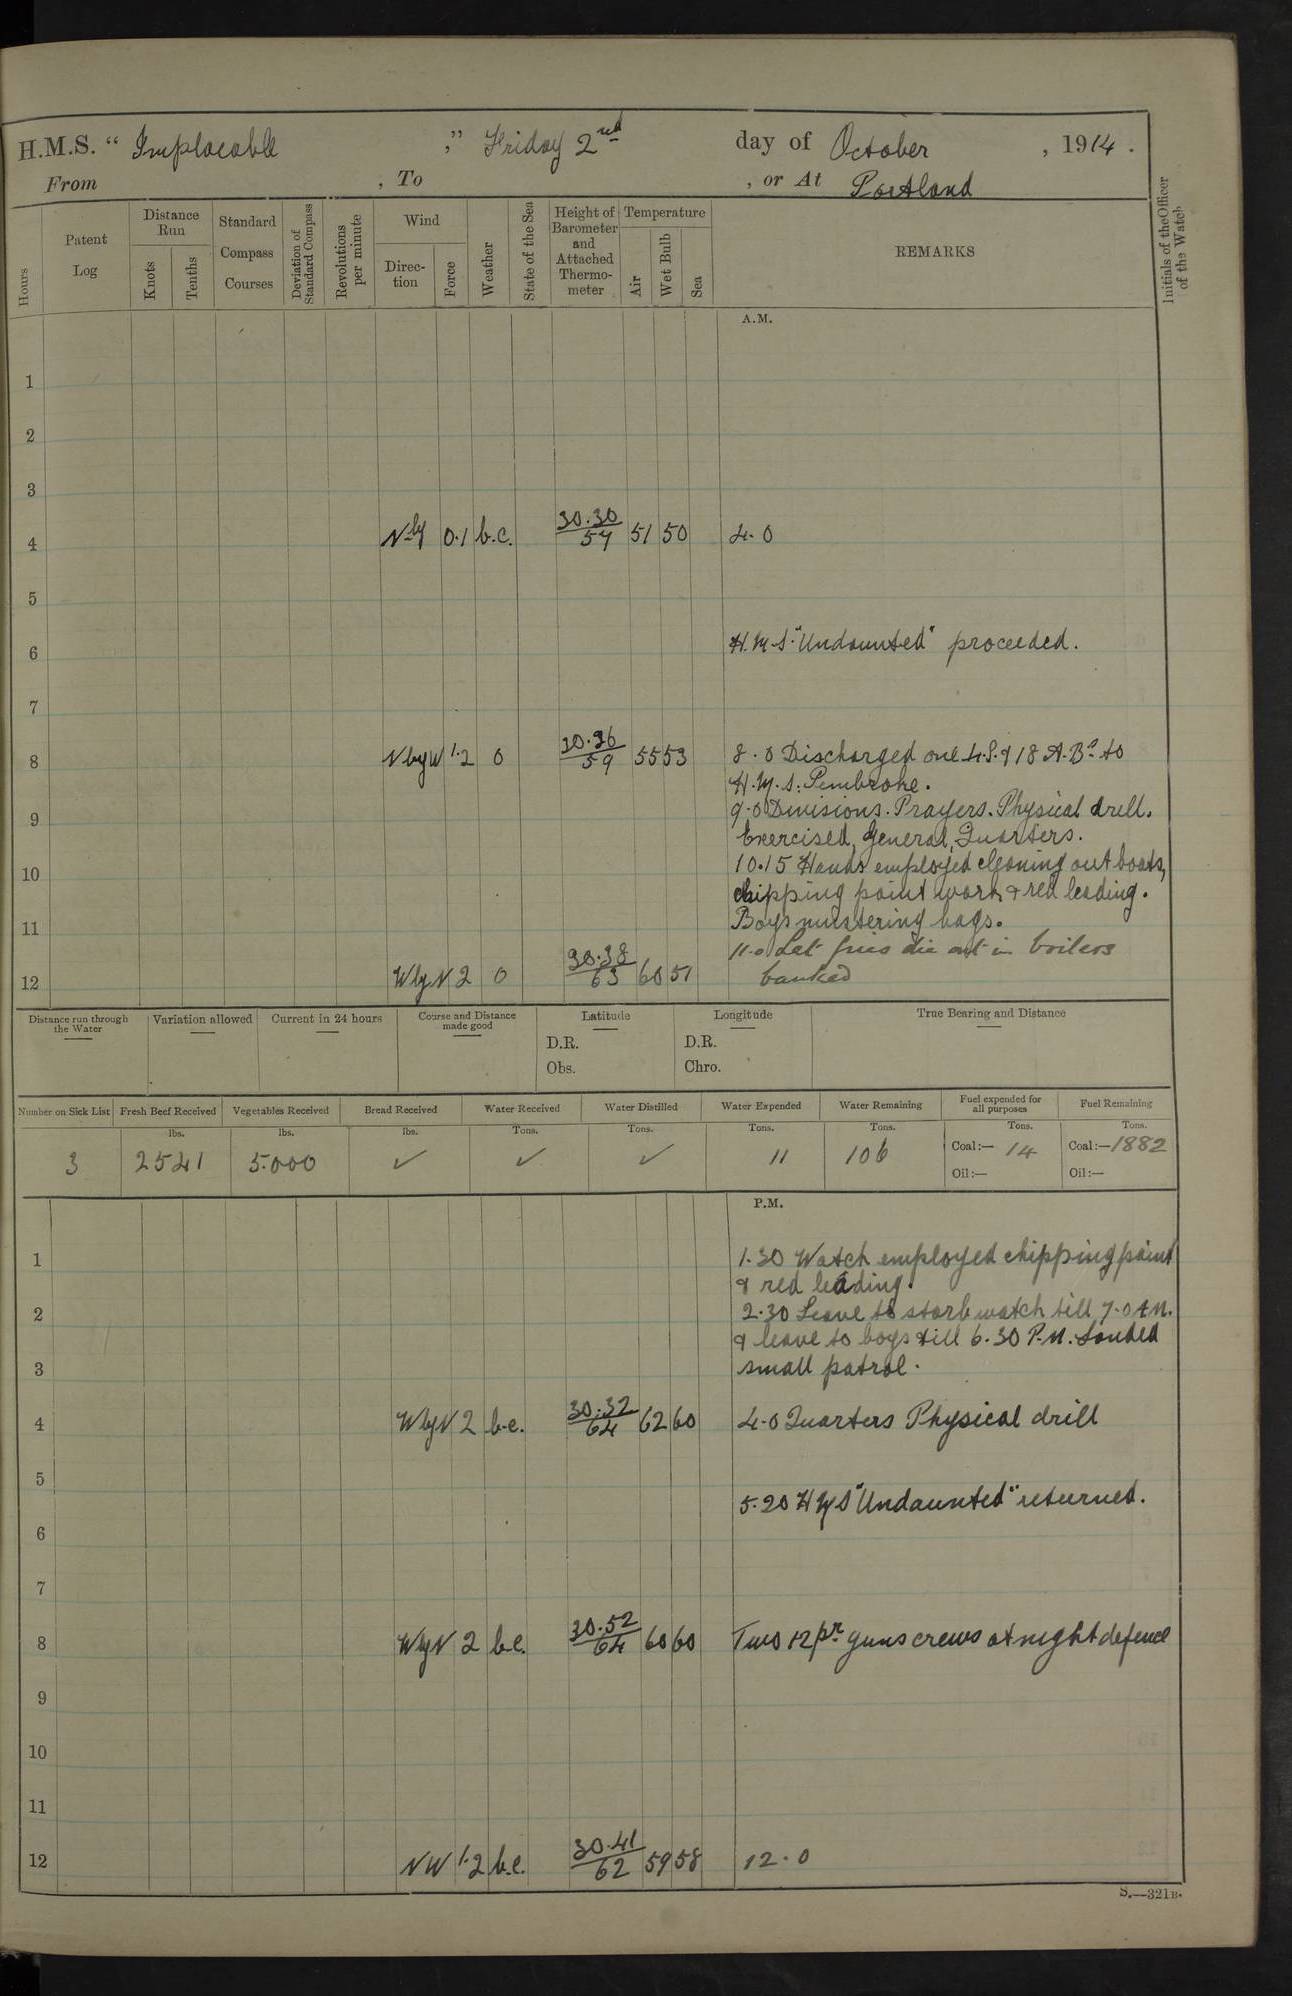 H.M.S. " Implacable ," Friday 2nd day of October , 1914 .
From , To , or At Portland
Hours
Patent Log
Distance Run
Knots
Tenths
Standard Compass Courses
Deviation of Standard Compass
Revolutions per minute
Wind
Direction
Force
Weather
State of the Sea
Height of Barometer and Attached Thermometer
Temperature
Air
Wet Bulb
Sea
REMARKS
Initials of the Officer of the Watch
A.M.
1
2
3
4 Nly 0.1 b.c. 30.30 57 51 50 4.0
5
6 H.M.S. "Undaunted" proceeded.
7
8 NbyW 1.2 0 30.36 59 55 53 8.0 Discharged one L.S. & 18 A.Bs to
H.M.S. Pembroke.
9 9.0 Divisions. Prayers. Physical drill.
Exercised General Quarters.
10 10.15 Hands employed cleaning out boats,
chipping paint work & red leading.
11 Boys mustering bags.
11.0 Let fires die out in boilers
12 WbyN 2 0 30.38 63 60 51 banked
Distance run through the Water
Variation allowed
Current in 24 hours
Course and Distance made good
Latitude
D.R.
Obs.
Longitude
D.R.
Chro.
True Bearing and Distance
Number on Sick List Fresh Beef Received Vegetables Received Bread Received Water Received Water Distilled Water Expended Water Remaining Fuel expended for all purposes Fuel Remaining
lbs. lbs. lbs. Tons. Tons. Tons. Tons. Tons. Tons.
3 2541 5.000 ✓ ✓ ✓ 11 106 Coal:— 14 Coal:— 1882
Oil:— Oil:—
P.M.
1 1.30 Watch employed chipping paint
& red leading.
2 2.30 Leave to starb watch till 7.0 AM.
& leave to boys till 6.30 P.M. Landed
3 small patrol.
4 WbyN 2 b.c. 30.32 64 62 60 4.0 Quarters Physical drill
5
5.20 HMS "Undaunted" returned.
6
7
8 WbyN 2 b.c. 30.52 64 60 60 Two 12pr guns crews at night defence
9
10
11
12 NW 1.2 b.c. 30.41 62 59 58 12.0
S.—321B.